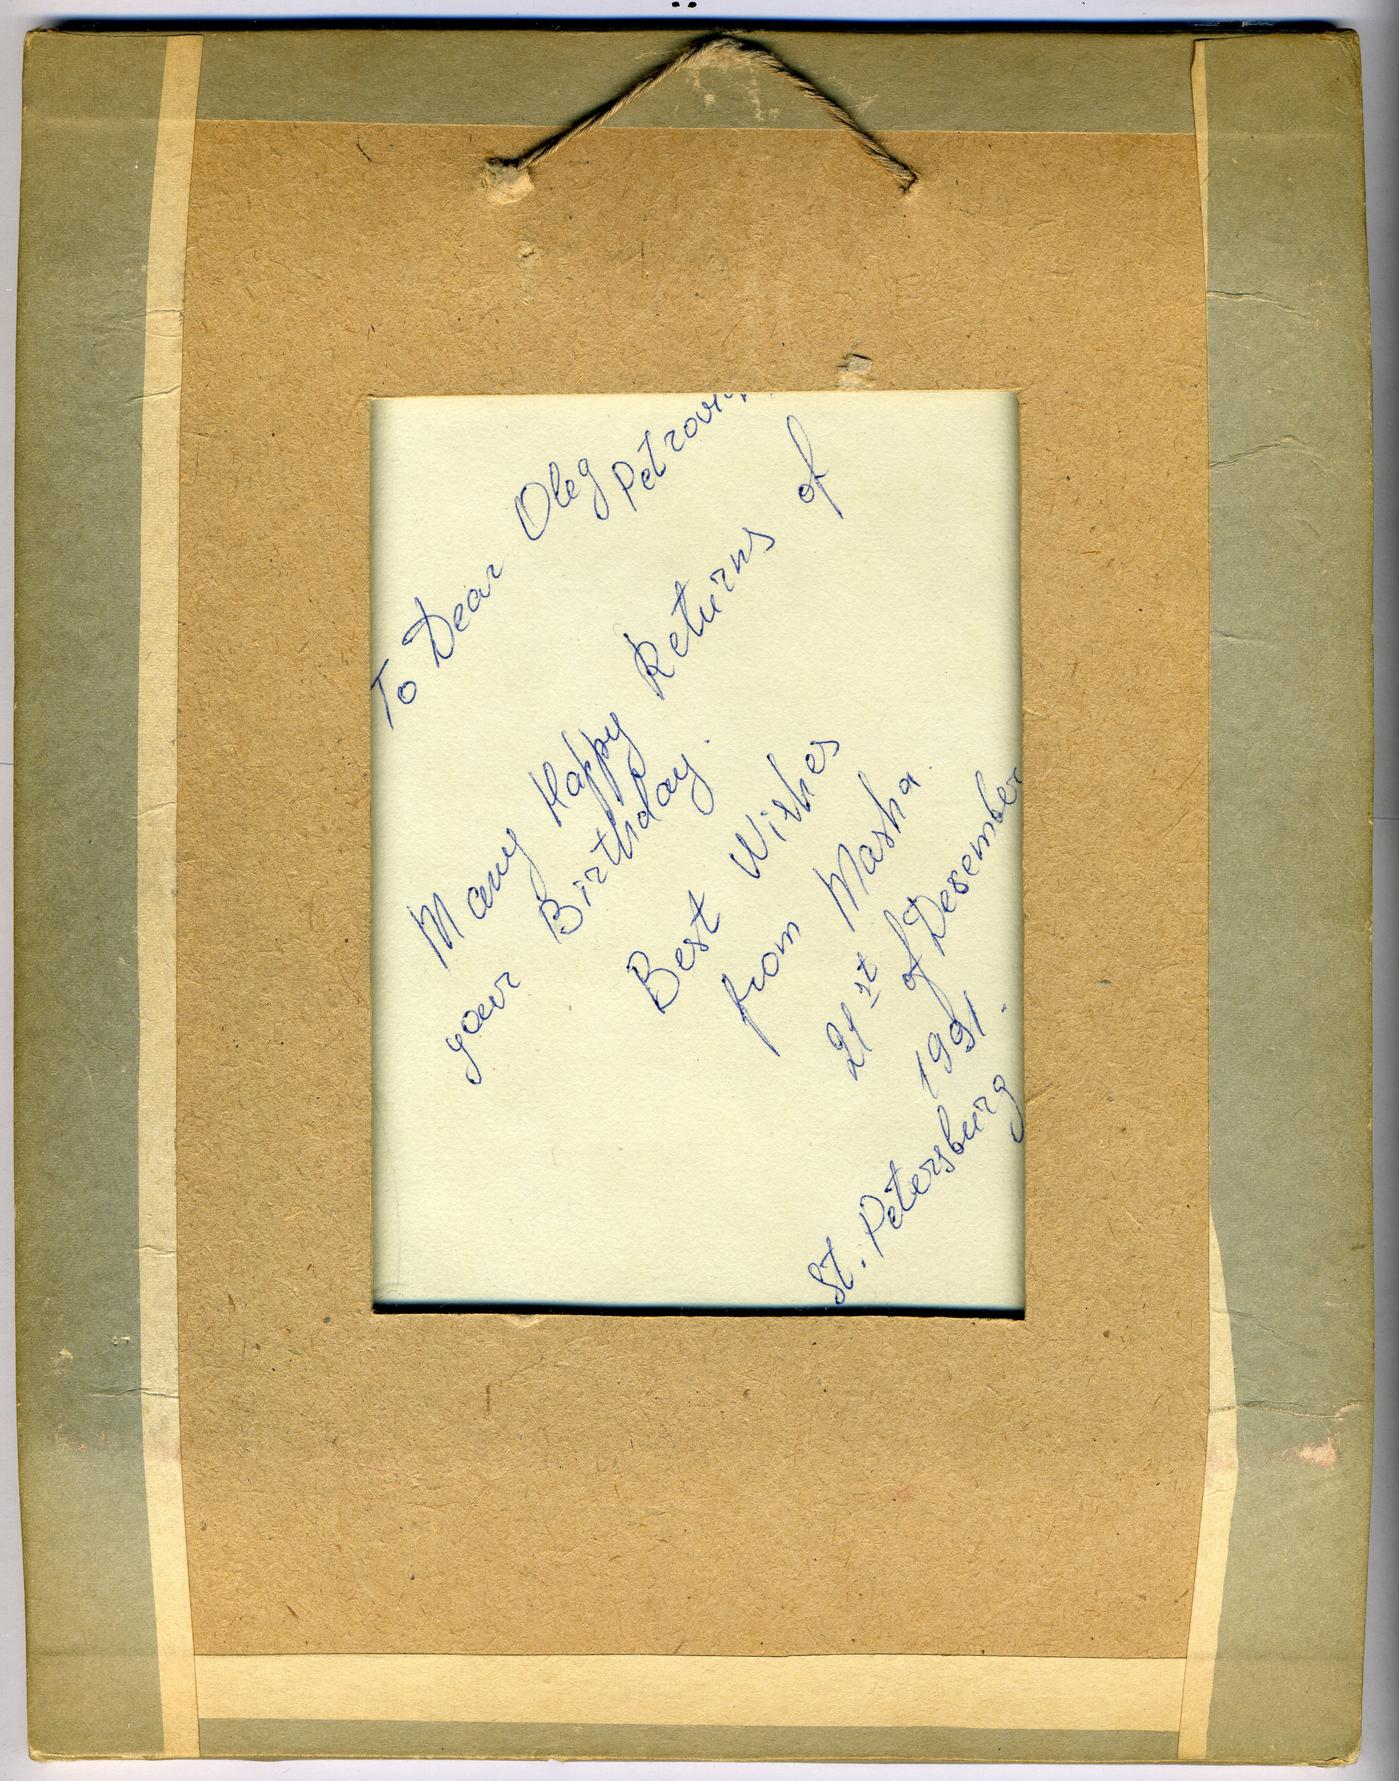 To Dear Oleg
Many Happy Returns of
your Birthday.
Best Wishes
from Masha.
21st of Desember
1991.
St. Petersburg